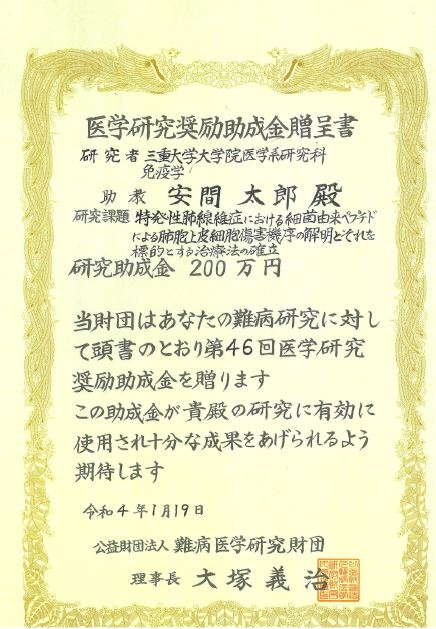 医学研究奨励助成金贈呈書
研究者 三重大学大学院医学系研究科
免疫学
助教 安間 太郎 殿
研究課題 特発性肺線維症における細菌由来ペプチド
による肺胞上皮細胞傷害機序の解明とそれを
標的とする治療法の確立
研究助成金 200万円
当財団はあなたの難病研究に対し
て頭書のとおり第46回医学研究
奨励助成金を贈ります
この助成金が貴殿の研究に有効に
使用され十分な成果をあげられるよう
期待します
令和4年1月19日
公益財団法人 難病医学研究財団
理事長 大塚義治